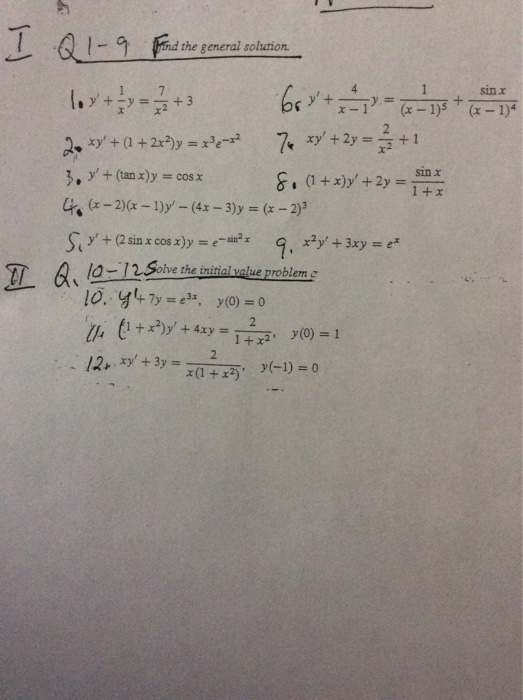 I Q1-9 Find the general solution.
1. y' + \frac{1}{x}y = \frac{7}{x^2} + 3
6. y' + \frac{4}{x-1}y = \frac{1}{(x-1)^5} + \frac{\sin x}{(x-1)^4}
2. xy' + (1 + 2x^2)y = x^3e^{-x^2}
7. xy' + 2y = \frac{2}{x^2} + 1
3. y' + (tan x)y = cos x
8. (1 + x)y' + 2y = \frac{\sin x}{1 + x}
4. (x - 2)(x - 1)y' - (4x - 3)y = (x - 2)^3
5. y' + (2 sin x cos x)y = e^{-\sin^2 x}
9. x^2y' + 3xy = e^x
II Q. 10-12 Solve the initial value problem
10. y' + 7y = e^{3x}, y(0) = 0
11. (1 + x^2)y' + 4xy = \frac{2}{1 + x^2}, y(0) = 1
12. xy' + 3y = \frac{2}{x(1 + x^2)}, y(-1) = 0